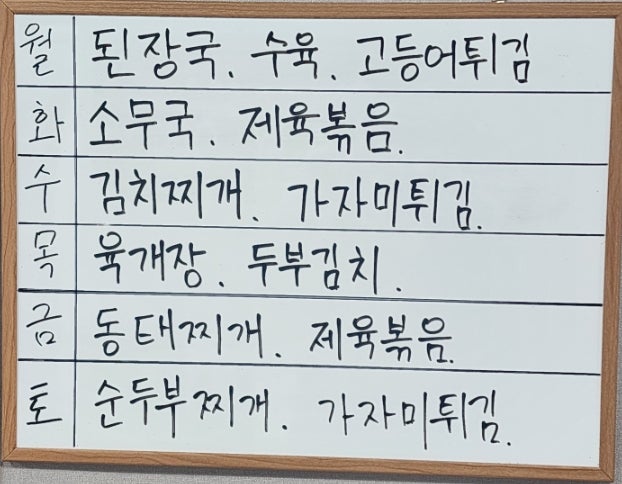 월 된장국. 수육. 고등어튀김
화 소무국. 제육볶음.
수 김치찌개. 가자미튀김.
목 육개장. 두부김치.
금 동태찌개. 제육볶음.
토 순두부찌개. 가자미튀김.